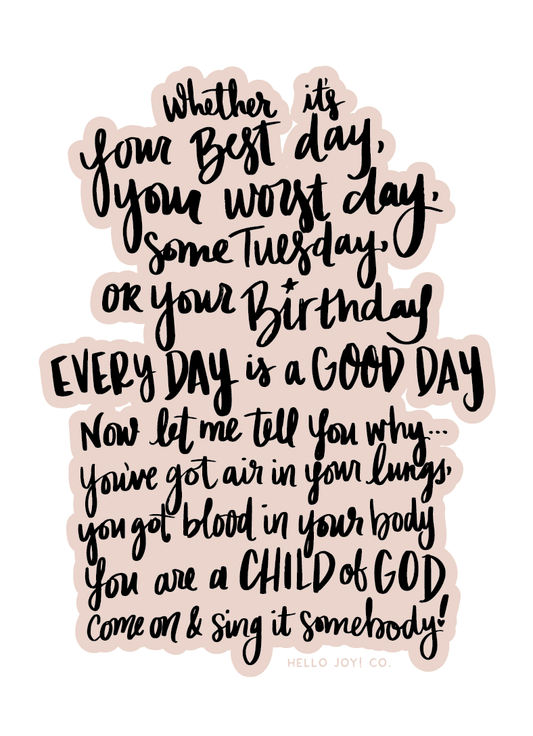 Whether it's
your Best day,
your worst day,
some Tuesday,
OR your Birthday
EVERY DAY is a GOOD DAY
Now let me tell you why...
you've got air in your lungs,
you got blood in your body
you are a CHILD of GOD
come on & sing it somebody!
HELLO JOY! CO.